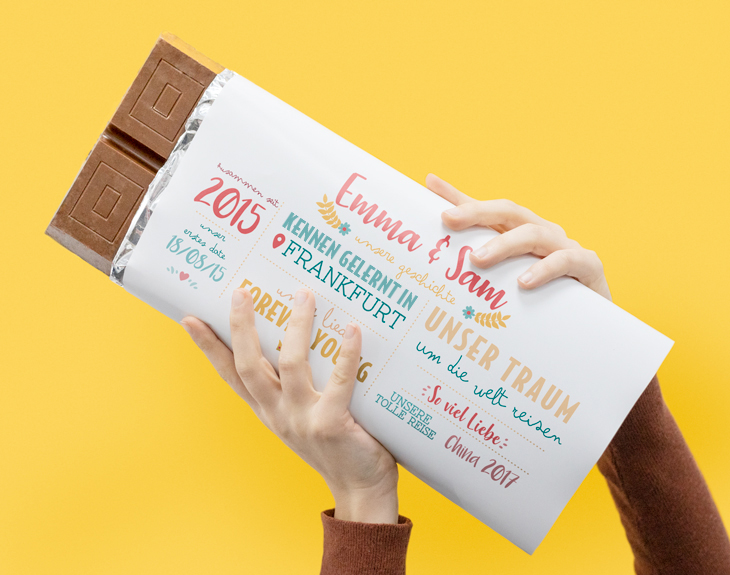 Emma & Sam
unsere geschichte
zusammen seit
2015
unser
erstes date
18/08/15
KENNEN GELERNT IN
FRANKFURT
FOREVER YOUNG
UNSER TRAUM
um die welt reisen
So viel Liebe
UNSERE
TOLLE REISE
China 2017